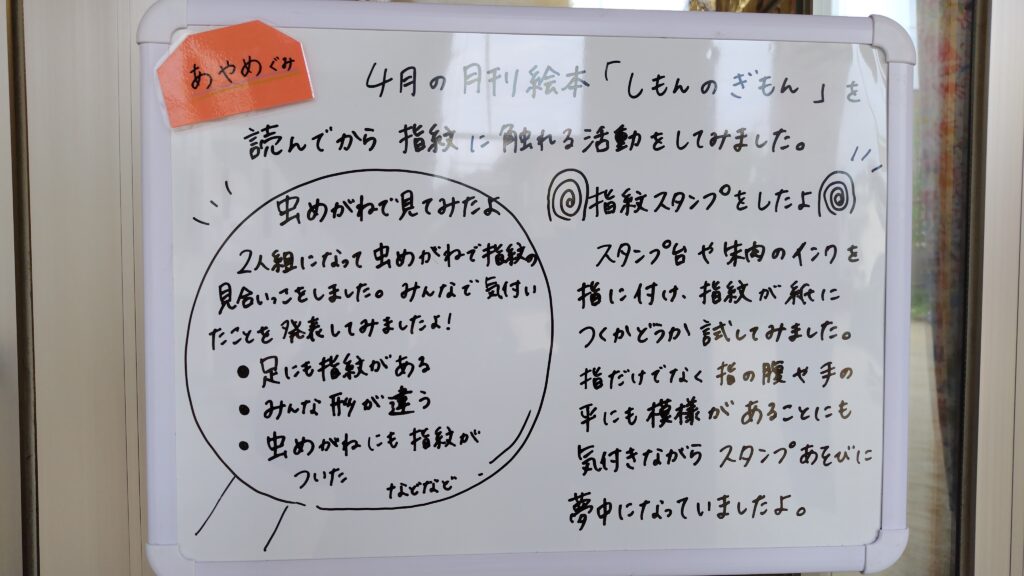 あやめぐみ
4月の月刊絵本「しもんのぎもん」を
読んでから 指紋に触れる活動をしてみました。
虫めがねで見てみたよ
2人組になって虫めがねで指紋の
見合いっこをしました。みんなで気付い
たことを発表してみましたよ!
● 足にも指紋がある
● みんな形が違う
● 虫めがねにも指紋が
ついた
などなど
指紋スタンプをしたよ
スタンプ台や朱肉のインクを
指に付け、指紋が紙に
つくかどうか試してみました。
指だけでなく指の腹や手の
平にも模様があることにも
気付きながらスタンプあそびに
夢中になっていましたよ。